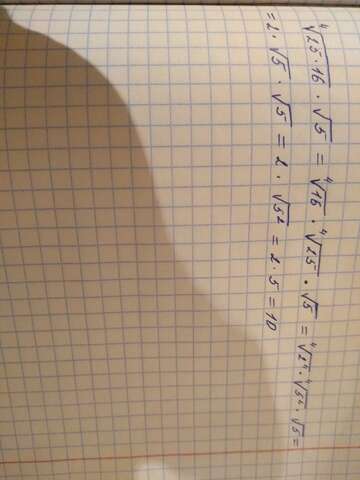 ⁴√25·16 · √5 = ⁴√16 · ⁴√25 · √5 = ⁴√2⁴ · ⁴√5² · √5 =
= 2 · √5 · √5 = 2 · √5² = 2 · 5 = 10